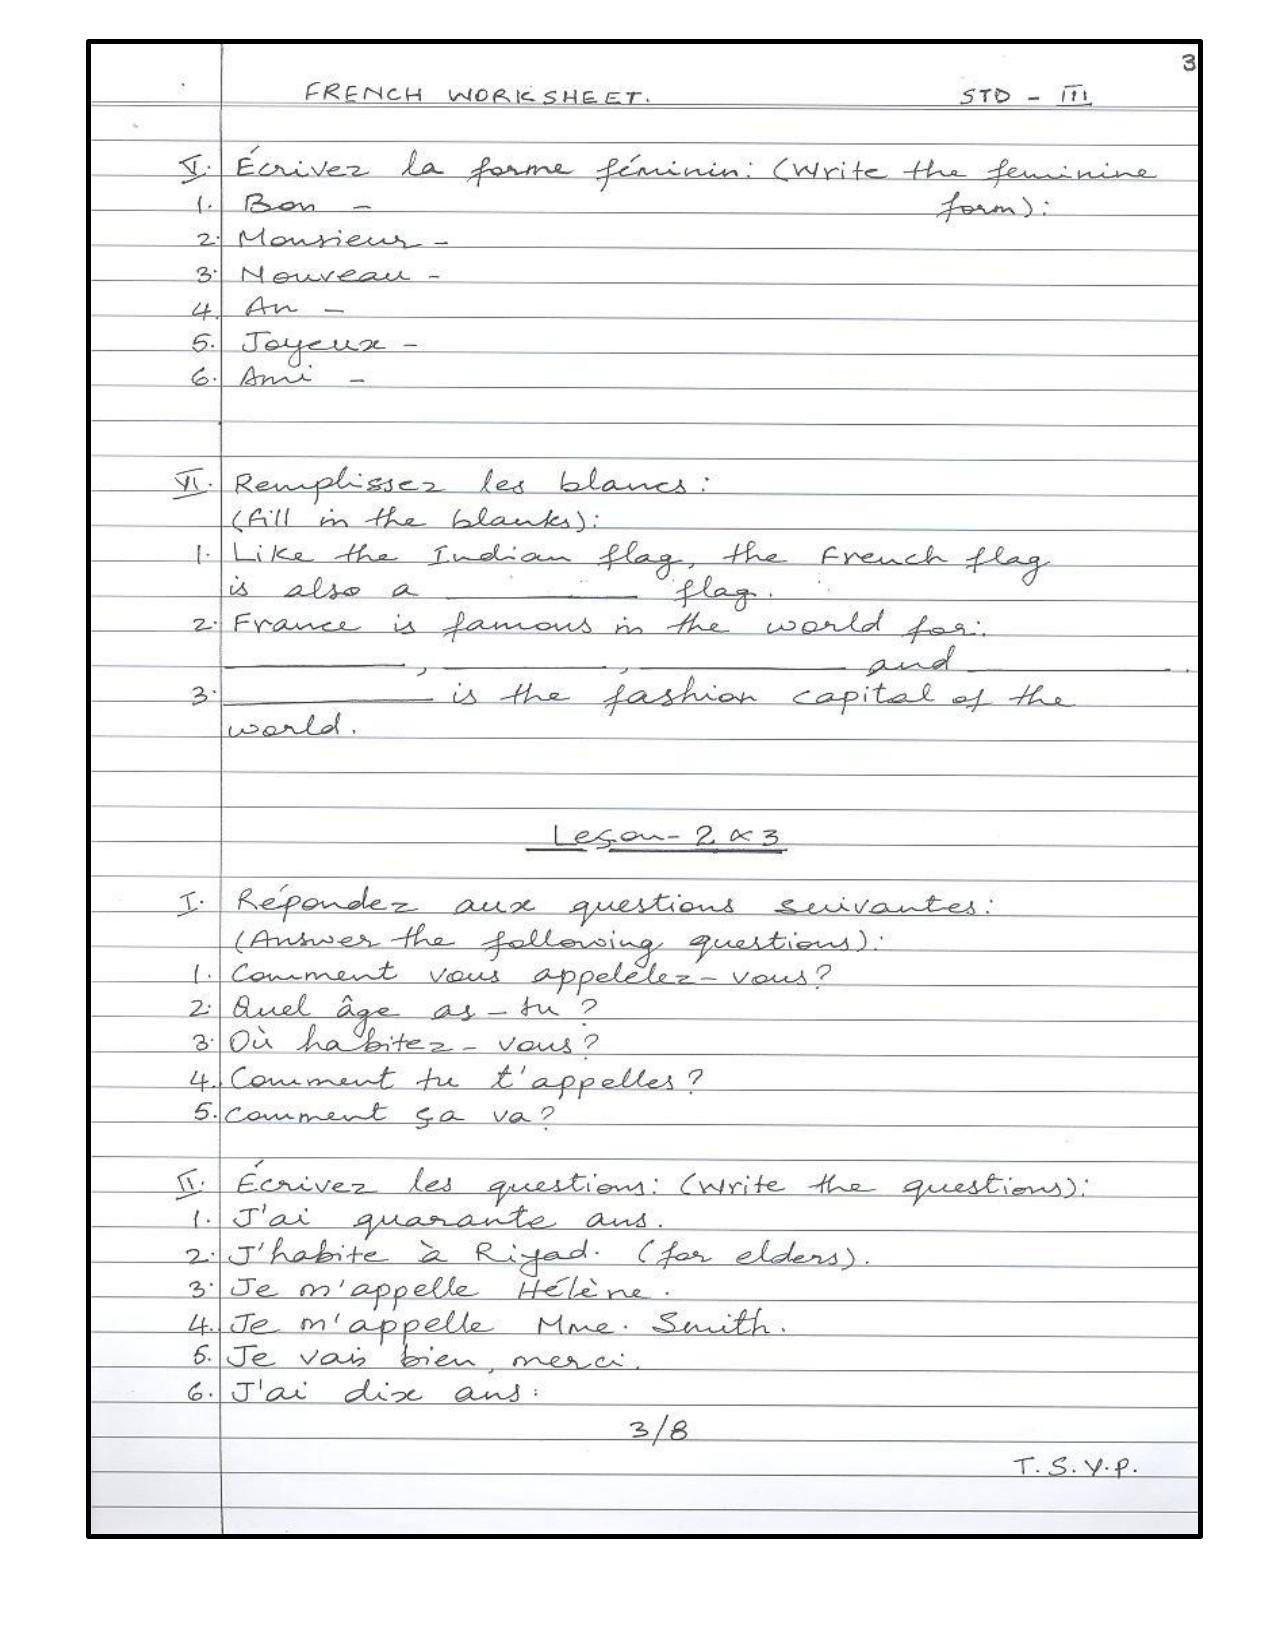 3
FRENCH WORKSHEET. STD - III
V. Écrivez la forme féminin: (Write the feminine
1. Bon - form):
2. Monsieur -
3. Nouveau -
4. An -
5. Joyeux -
6. Ami -
VI. Remplissez les blancs:
(Fill in the blanks):
1. Like the Indian flag, the French flag
is also a ________ flag.
2. France is famous in the world for:
________, ________, ________ and ________.
3. ________ is the fashion capital of the
world.
Leçon - 2 & 3
I. Répondez aux questions suivantes:
(Answer the following questions):
1. Comment vous appelelez-vous?
2. Quel âge as-tu?
3. Où habitez-vous?
4. Comment tu t'appelles?
5. Comment ça va?
II. Écrivez les questions: (Write the questions):
1. J'ai quarante ans.
2. J'habite à Riyad. (for elders).
3. Je m'appelle Hélène.
4. Je m'appelle Mme. Smith.
5. Je vais bien, merci.
6. J'ai dix ans.
3/8
T.S.V.P.